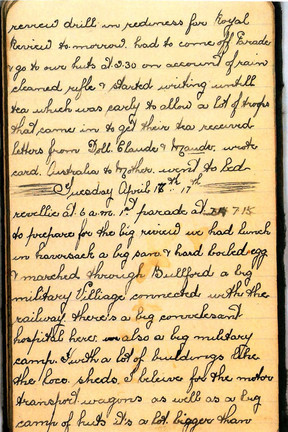 review drill in rediness for Royal
Review to morrow. had to come off Parade
& go to our huts at 2.30 on account of rain
cleaned rifle & started writing untill
tea which was early to allow a lot of troops
that came in to get their tea received
letters from Doll. Claude & Maude. wrote
card. Australia to Mother. went to bed.
Tuesday April 17th
revellie at 6 a.m. 1st parade at 7.15
to prepare for the big review we had lunch
in haversack a big san. & hard boiled egg
& marched through Bullford a big
military Villiage connected with the
railway. there's a big convelesant
hospital here. also a big military
camp. with a lot of buildings like
the loco. sheds. I beleive for the motor
transport wagons as well as a big
camp of huts. It's a lot bigger than